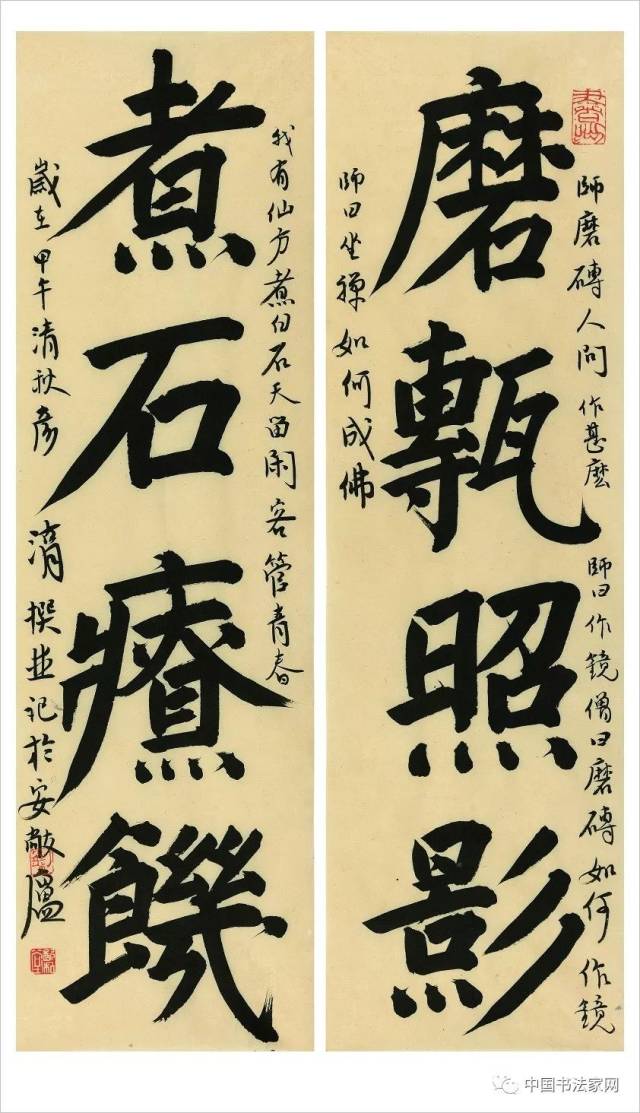 師磨磚人問作甚麼師曰作鏡僧曰磨磚如何作鏡
磨甎照影
師曰坐禪如何成佛
我有仙方煮白石天留閑客管青春
煮石療饑
歲在甲午清秋彥清撰並記於安敞廬
中国书法家网